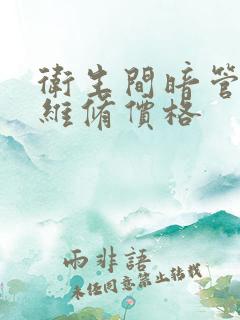 衛生間暗管
維脩價格
雨非語
未任同意禁止转载